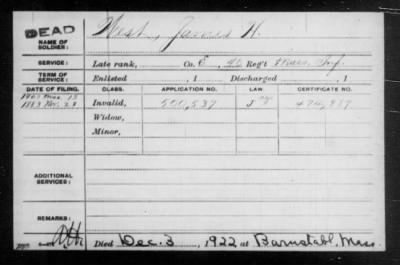 DEAD
NAME OF SOLDIER: West, James H.
SERVICE: Late rank, Co. E, 46 Reg't Mass. Inf.
TERM OF SERVICE: Enlisted , 1 Discharged , 1
DATE OF FILING. CLASS. APPLICATION NO. LAW CERTIFICATE NO.
1883 Nov. 24 Invalid, 500,537 474,957
Widow,
Minor,
ADDITIONAL SERVICES:
REMARKS:
Died Dec. 3, 1922 at Barnstabl, Mass.